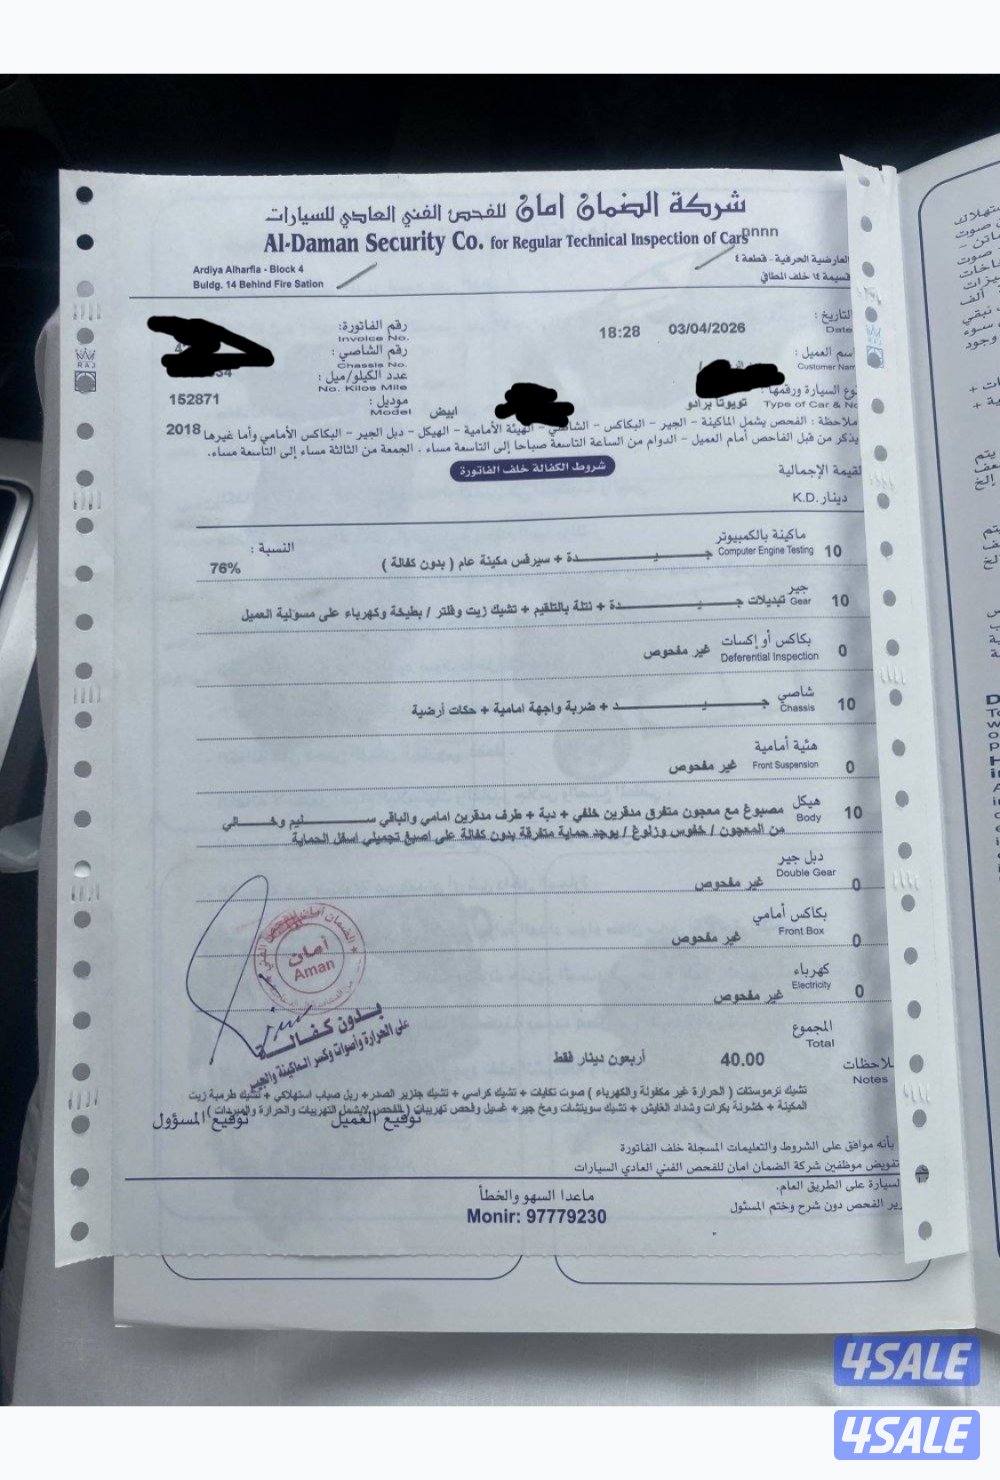 شركة الضمان امان للفحص الفني العادي للسيارات
Al-Daman Security Co. for Regular Technical Inspection of Cars
nnnn
Ardiya Alharfia - Block 4
Buldg. 14 Behind Fire Sation
العارضية الحرفية - قطعة ٤
قسيمة ١٤ خلف المطافي
التاريخ :
Date
03/04/2026
18:28
رقم الفاتورة:
Invoice No.
سم العميل :
Customer Nam
رقم الشاصي :
Chassis No.
34
وع السيارة ورقمها:
Type of Car & No
تويوتا برادو
ابيض
عدد الكيلو/ميل :
No. Kilos Mile
152871
موديل :
Model
2018
ملاحظة : الفحص يشمل الماكينة - الجير - البكاكس - الشاصي - الهيئة الأمامية - الهيكل - دبل الجير - البكاكس الأمامي وأما غيرها
يذكر من قبل الفاحص أمام العميل - الدوام من الساعة التاسعة صباحا إلى التاسعة مساء . الجمعة من الثالثة مساء إلى التاسعة مساء.
شروط الكفالة خلف الفاتورة
القيمة الإجمالية
دينار K.D.
النسبة :
76%
ماكينة بالكمبيوتر
Computer Engine Testing
10
جـــيـــدة + سيرفس مكينة عام ( بدون كفالة )
جير
Gear
10
تبديلات جـــيـــدة + نتلة بالتلقيم + تشيك زيت وفلتر / بطيخة وكهرباء على مسولية العميل
بكاكس أو إكسات
Deferential Inspection
0
غير مفحوص
شاصي
Chassis
10
جـــيـــد + ضربة واجهة امامية + حكات أرضية
هئية أمامية
Front Suspension
0
غير مفحوص
هيكل
Body
10
مصبوغ مع معجون متفرق مدقرين خلفي + دبة + طرف مدقرين امامي والباقي ســـليم وخـــالي
من المعجون / خفوس وزلوغ / يوجد حماية متفرقة بدون كفالة على اصبغ تجميلي اسفل الحماية
دبل جير
Double Gear
0
غير مفحوص
بكاكس أمامي
Front Box
0
غير مفحوص
كهرباء
Electricity
0
غير مفحوص
أمان
Aman
بدون كفالة
على الحرارة وأصوات وكسر الماكينة والجير
المجموع
Total
40.00
أربعون دينار فقط
لاحظات
Notes
تشيك ترموستات ( الحرارة غير مكفولة والكهرباء ) صوت تكايات + تشيك كراسي + تشيك جنزير الصدر+ ريل صباب استهلاكي + تشيك طرمبة زيت
المكينة + خشونة بكرات وشداد القايش + تشيك سويتشات ومخ جير+ غسيل وفحص تهريبات ( للفحص لايشمل التهريبات والحرارة والمبردات )
توقيع العميل
توقيع المسؤول
بأنه موافق على الشروط والتعليمات المسجلة خلف الفاتورة
تفويض موظفين شركة الضمان امان للفحص الفني العادي السيارات
لسيارة على الطريق العام.
رير الفحص دون شرح وختم المسئول
ماعدا السهو والخطأ
Monir: 97779230
4SALE
4SALE